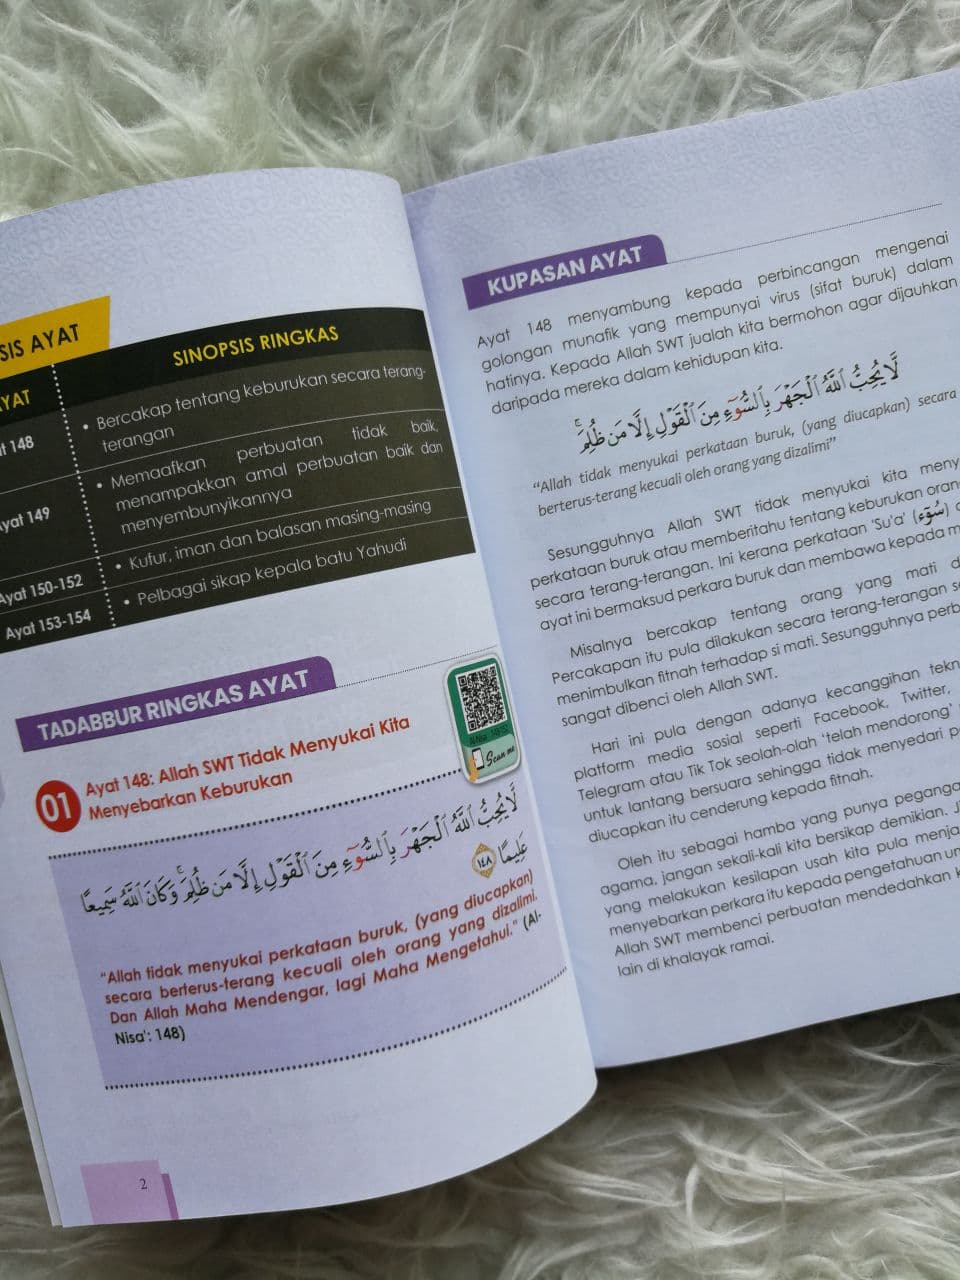 SIS AYAT
AYAT
SINOPSIS RINGKAS
at 148
• Bercakap tentang keburukan secara terang-
terangan
Ayat 149
• Memaafkan perbuatan tidak baik,
menampakkan amal perbuatan baik dan
menyembunyikannya
Ayat 150-152
• Kufur, iman dan balasan masing-masing
Ayat 153-154
• Pelbagai sikap kepala batu Yahudi
TADABBUR RINGKAS AYAT
Scan me
01
Ayat 148: Allah SWT Tidak Menyukai Kita
Menyebarkan Keburukan
لَا يُحِبُّ اللَّهُ الْجَهْرَ بِالسُّوءِ مِنَ الْقَوْلِ إِلَّا مَن ظُلِمَ ۚ وَكَانَ اللَّهُ سَمِيعًا
عَلِيمًا ١٤٨
“Allah tidak menyukai perkataan buruk, (yang diucapkan)
secara berterus-terang kecuali oleh orang yang dizalimi.
Dan Allah Maha Mendengar, lagi Maha Mengetahui.” (Al-
Nisa’: 148)
2
KUPASAN AYAT
Ayat 148 menyambung kepada perbincangan mengenai
golongan munafik yang mempunyai virus (sifat buruk) dalam
hatinya. Kepada Allah SWT jualah kita bermohon agar dijauhkan
daripada mereka dalam kehidupan kita.
لَا يُحِبُّ اللَّهُ الْجَهْرَ بِالسُّوءِ مِنَ الْقَوْلِ إِلَّا مَن ظُلِمَ ۚ
“Allah tidak menyukai perkataan buruk, (yang diucapkan) secara
berterus-terang kecuali oleh orang yang dizalimi”
Sesungguhnya Allah SWT tidak menyukai kita meny
perkataan buruk atau memberitahu tentang keburukan oran
secara terang-terangan. Ini kerana perkataan ‘Su’a’ (سُوٓء)
ayat ini bermaksud perkara buruk dan membawa kepada m
Misalnya bercakap tentang orang yang mati d
Percakapan itu pula dilakukan secara terang-terangan se
menimbulkan fitnah terhadap si mati. Sesungguhnya perb
sangat dibenci oleh Allah SWT.
Hari ini pula dengan adanya kecanggihan tekn
platform media sosial seperti Facebook, Twitter,
Telegram atau Tik Tok seolah-olah ‘telah mendorong’
untuk lantang bersuara sehingga tidak menyedari p
diucapkan itu cenderung kepada fitnah.
Oleh itu sebagai hamba yang punya pegang
agama, jangan sekali-kali kita bersikap demikian. J
yang melakukan kesilapan usah kita pula menja
menyebarkan perkara itu kepada pengetahuan um
Allah SWT membenci perbuatan mendedahkan k
lain di khalayak ramai.